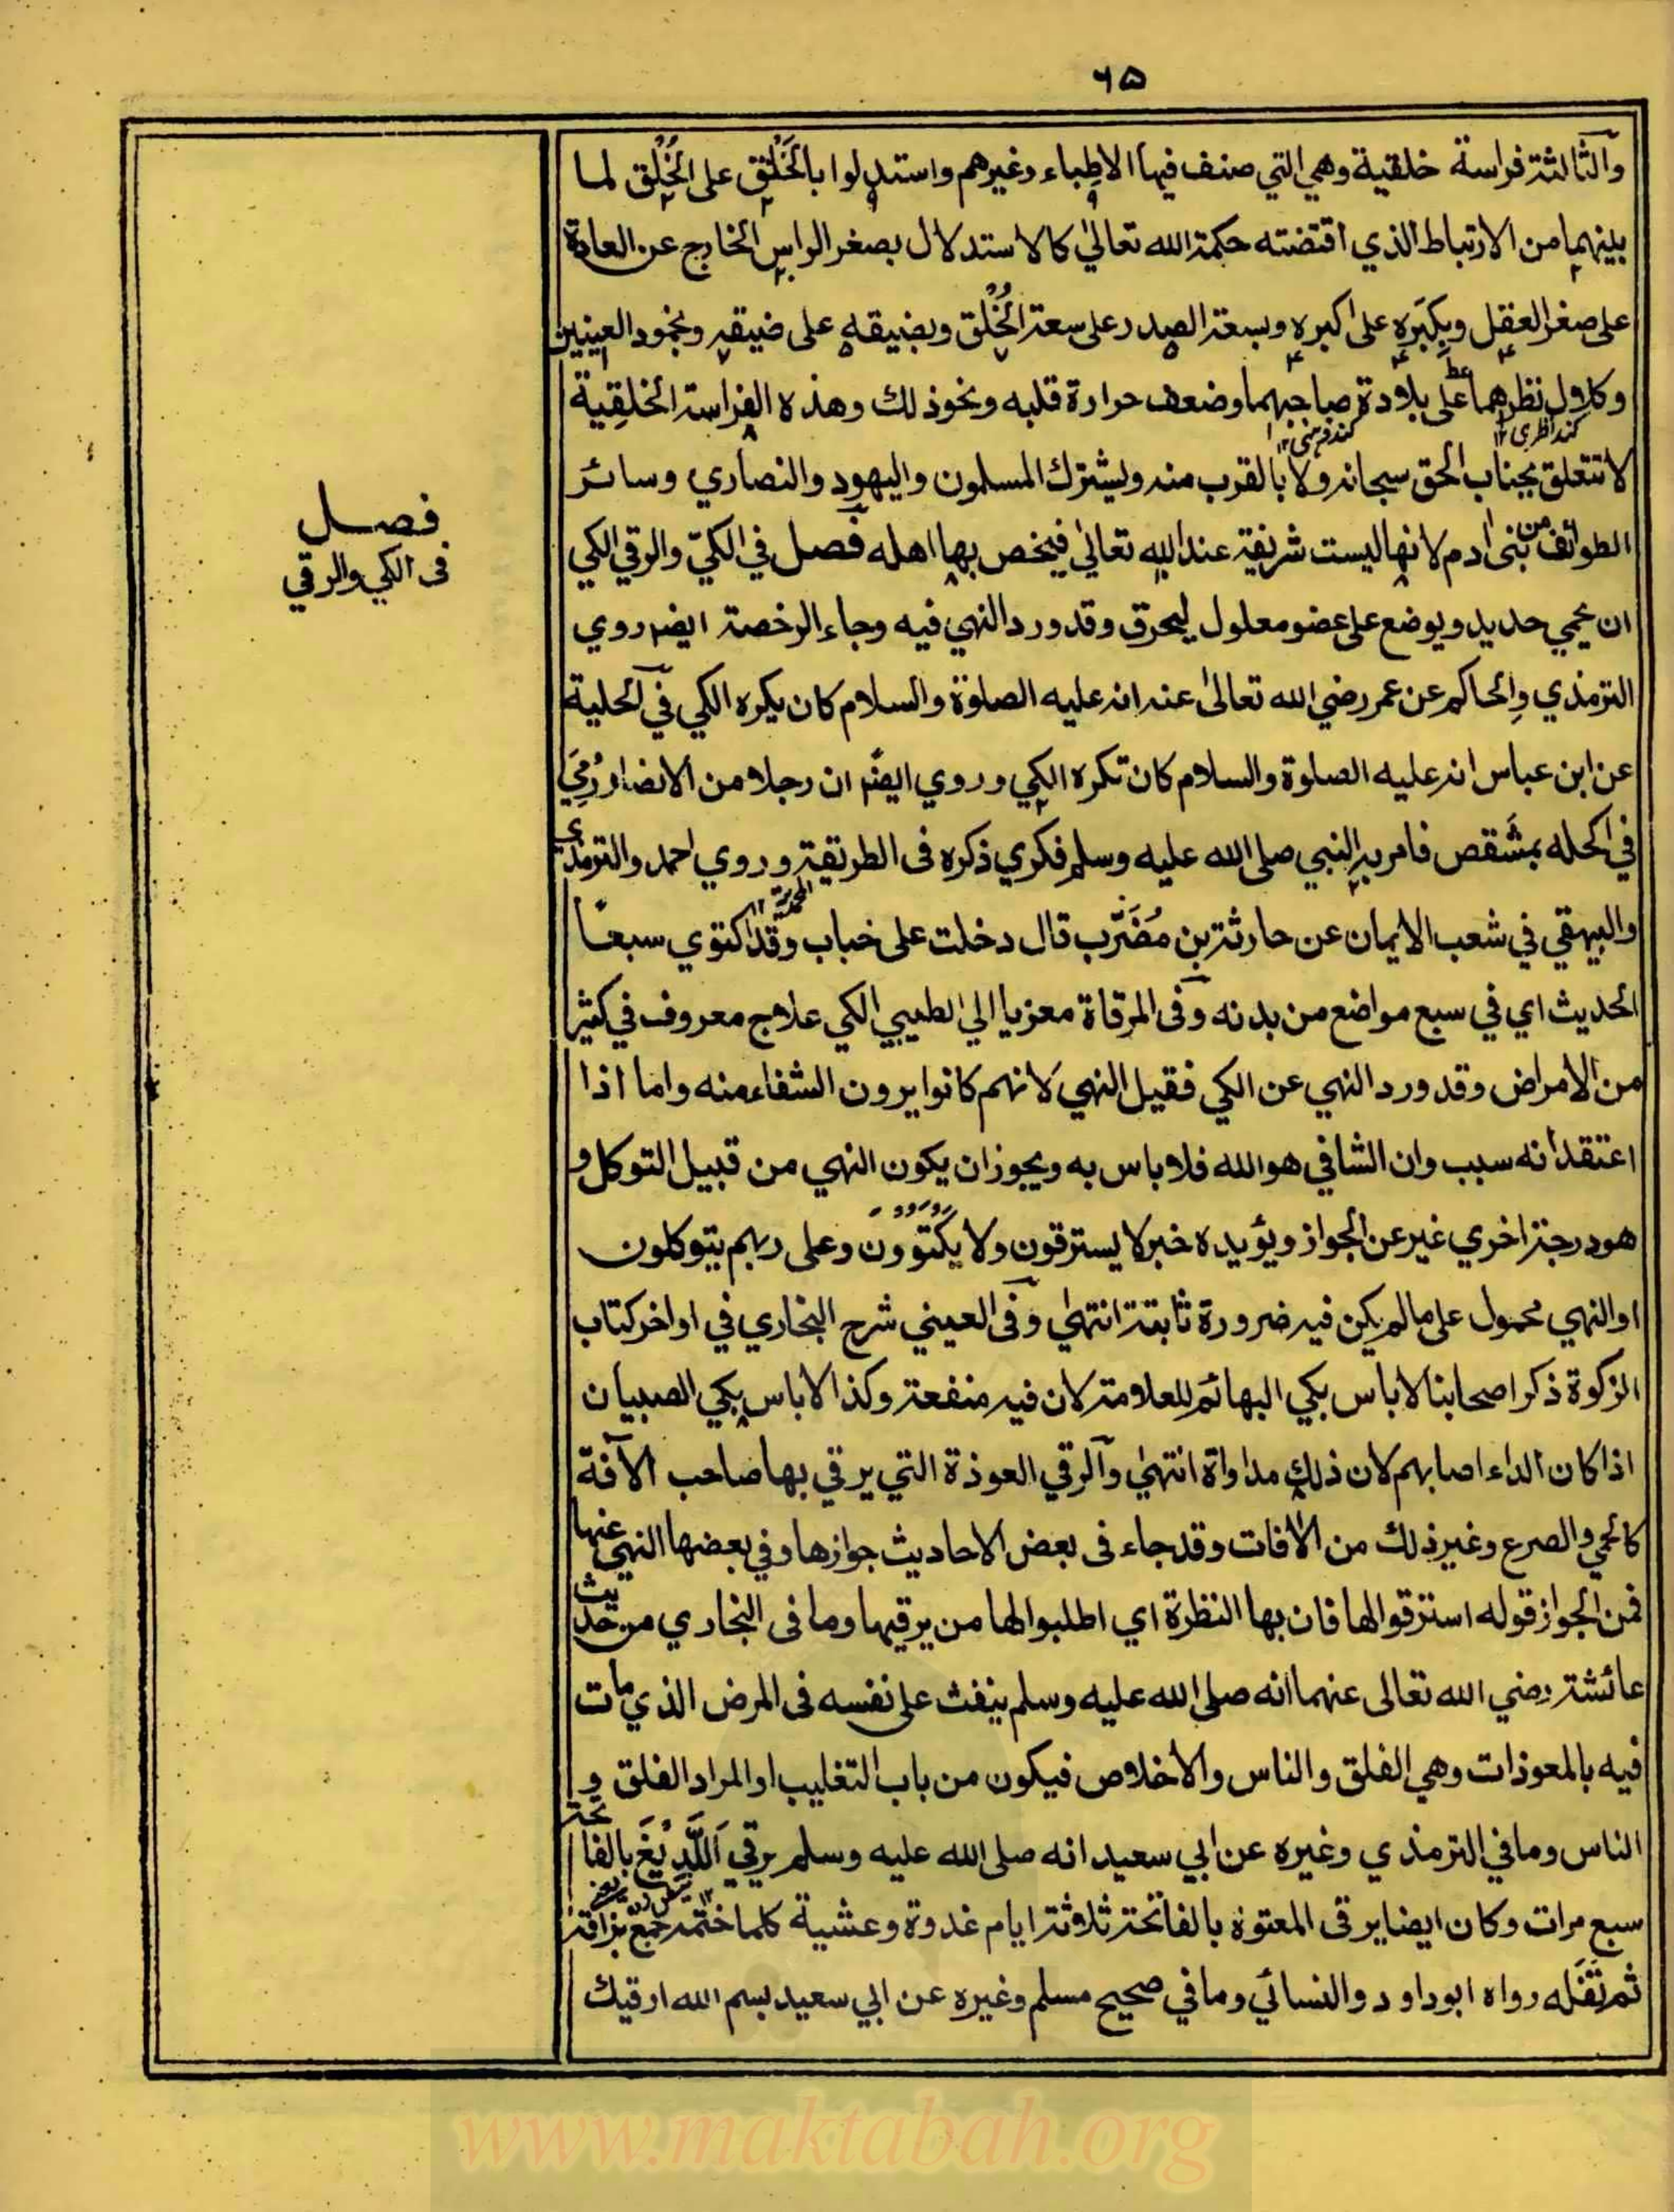 ٦٥
والثالثة فراسة خلقية وهي التي صنف فيها الاطباء وغيرهم واستدلوا بالخَلْق على الخُلُق لما
بينهما من الارتباط الذي اقتضته حكمة الله تعالى كالاستدلال بصغر الراس الخارج عن العادة
على صغر العقل وبكبره على اكبره وبسعة الصدر على سعة الخُلْق وبضيقه على ضيقه وبخمود العينين
وكلول نظرهما على بلادة صاحبهما وضعف حرارة قلبه ونحو ذلك وهذه الفراسة الخلقية
لا تتعلق بجناب الحق سبحانه ولا بالقرب منه ويشترك المسلمون واليهود والنصاري وسائر
الطوائف من بنى ادم لانها ليست شريفة عند الله تعالى فيخص بها اهله فصل في الكيّ والرقي الكي
فصل
فى الكي والرقي
ان يحمي حديد ويوضع على عضو معلول ليحرق وقد ورد النهي فيه وجاء الرخصة ايضا روي
الترمذي والحاكم عن عمر رضي الله تعالى عنه انه عليه الصلوة والسلام كان يكره الكي في الحلية
عن ابن عباس انه عليه الصلوة والسلام كان تكره الكي وروي ايضا ان رجلا من الانصار رُمِيَ
في اكحله بمشقص فامر به النبي صلى الله عليه وسلم فكري ذكره فى الطريقة وروي احمد والترمذي
والبيهقي في شعب الايمان عن حارثة بن مُضَرّب قال دخلت على خباب وقد اكتوي سبعا
الحديث اي في سبع مواضع من بدنه وفى المرقاة معزيا الي الطيبي الكي علاج معروف في كثير
من الامراض وقد ورد النهي عن الكي فقيل النهي لانهم كانوا يرون الشفاء منه واما اذا
اعتقد انه سبب وان الشافي هو الله فلا باس به ويجوز ان يكون النهي من قبيل التوكل و
هو درجة اخري غير عن الجواز ويؤيده خبر لا يسترقون ولا يكتوون وعلى ربهم يتوكلون
او النهي محمول على مالم يكن فيه ضرورة ثابتة انتهى وفى العيني شرح البخاري في اواخر كتاب
الزكوة ذكر اصحابنا لا باس بكي البهائم للعلامة لان فيه منفعة وكذا لا باس بكي الصبيان
اذا كان الداء اصابهم لان ذلك مداواة انتهى والرقي العوذة التي يرقي بها صاحب الآفة
كالحمي والصرع وغير ذلك من الافات وقد جاء فى بعض الاحاديث جوازها وفي بعضها النهي عنها
فمن الجواز قوله استرقوا لها فان بها النظرة اي اطلبوا لها من يرقيها وما فى البخاري من حديث
عائشة رضي الله تعالى عنهما انه صلى الله عليه وسلم ينفث على نفسه فى المرض الذي مات
فيه بالمعوذات وهي الفلق والناس والاخلاص فيكون من باب التغليب او المراد الفلق و
الناس وما في الترمذي وغيره عن ابي سعيد انه صلى الله عليه وسلم يرقي اللَّدِيْغَ بالفاتحة
سبع مرات وكان ايضا يرقى المعتوه بالفاتحة ثلاثة ايام غدوة وعشية كلما ختمه جمع بزاقه
ثم تَفَله رواه ابو داود والنسائي وما في صحيح مسلم وغيره عن ابي سعيد بسم الله ارقيك
www.maktabah.org